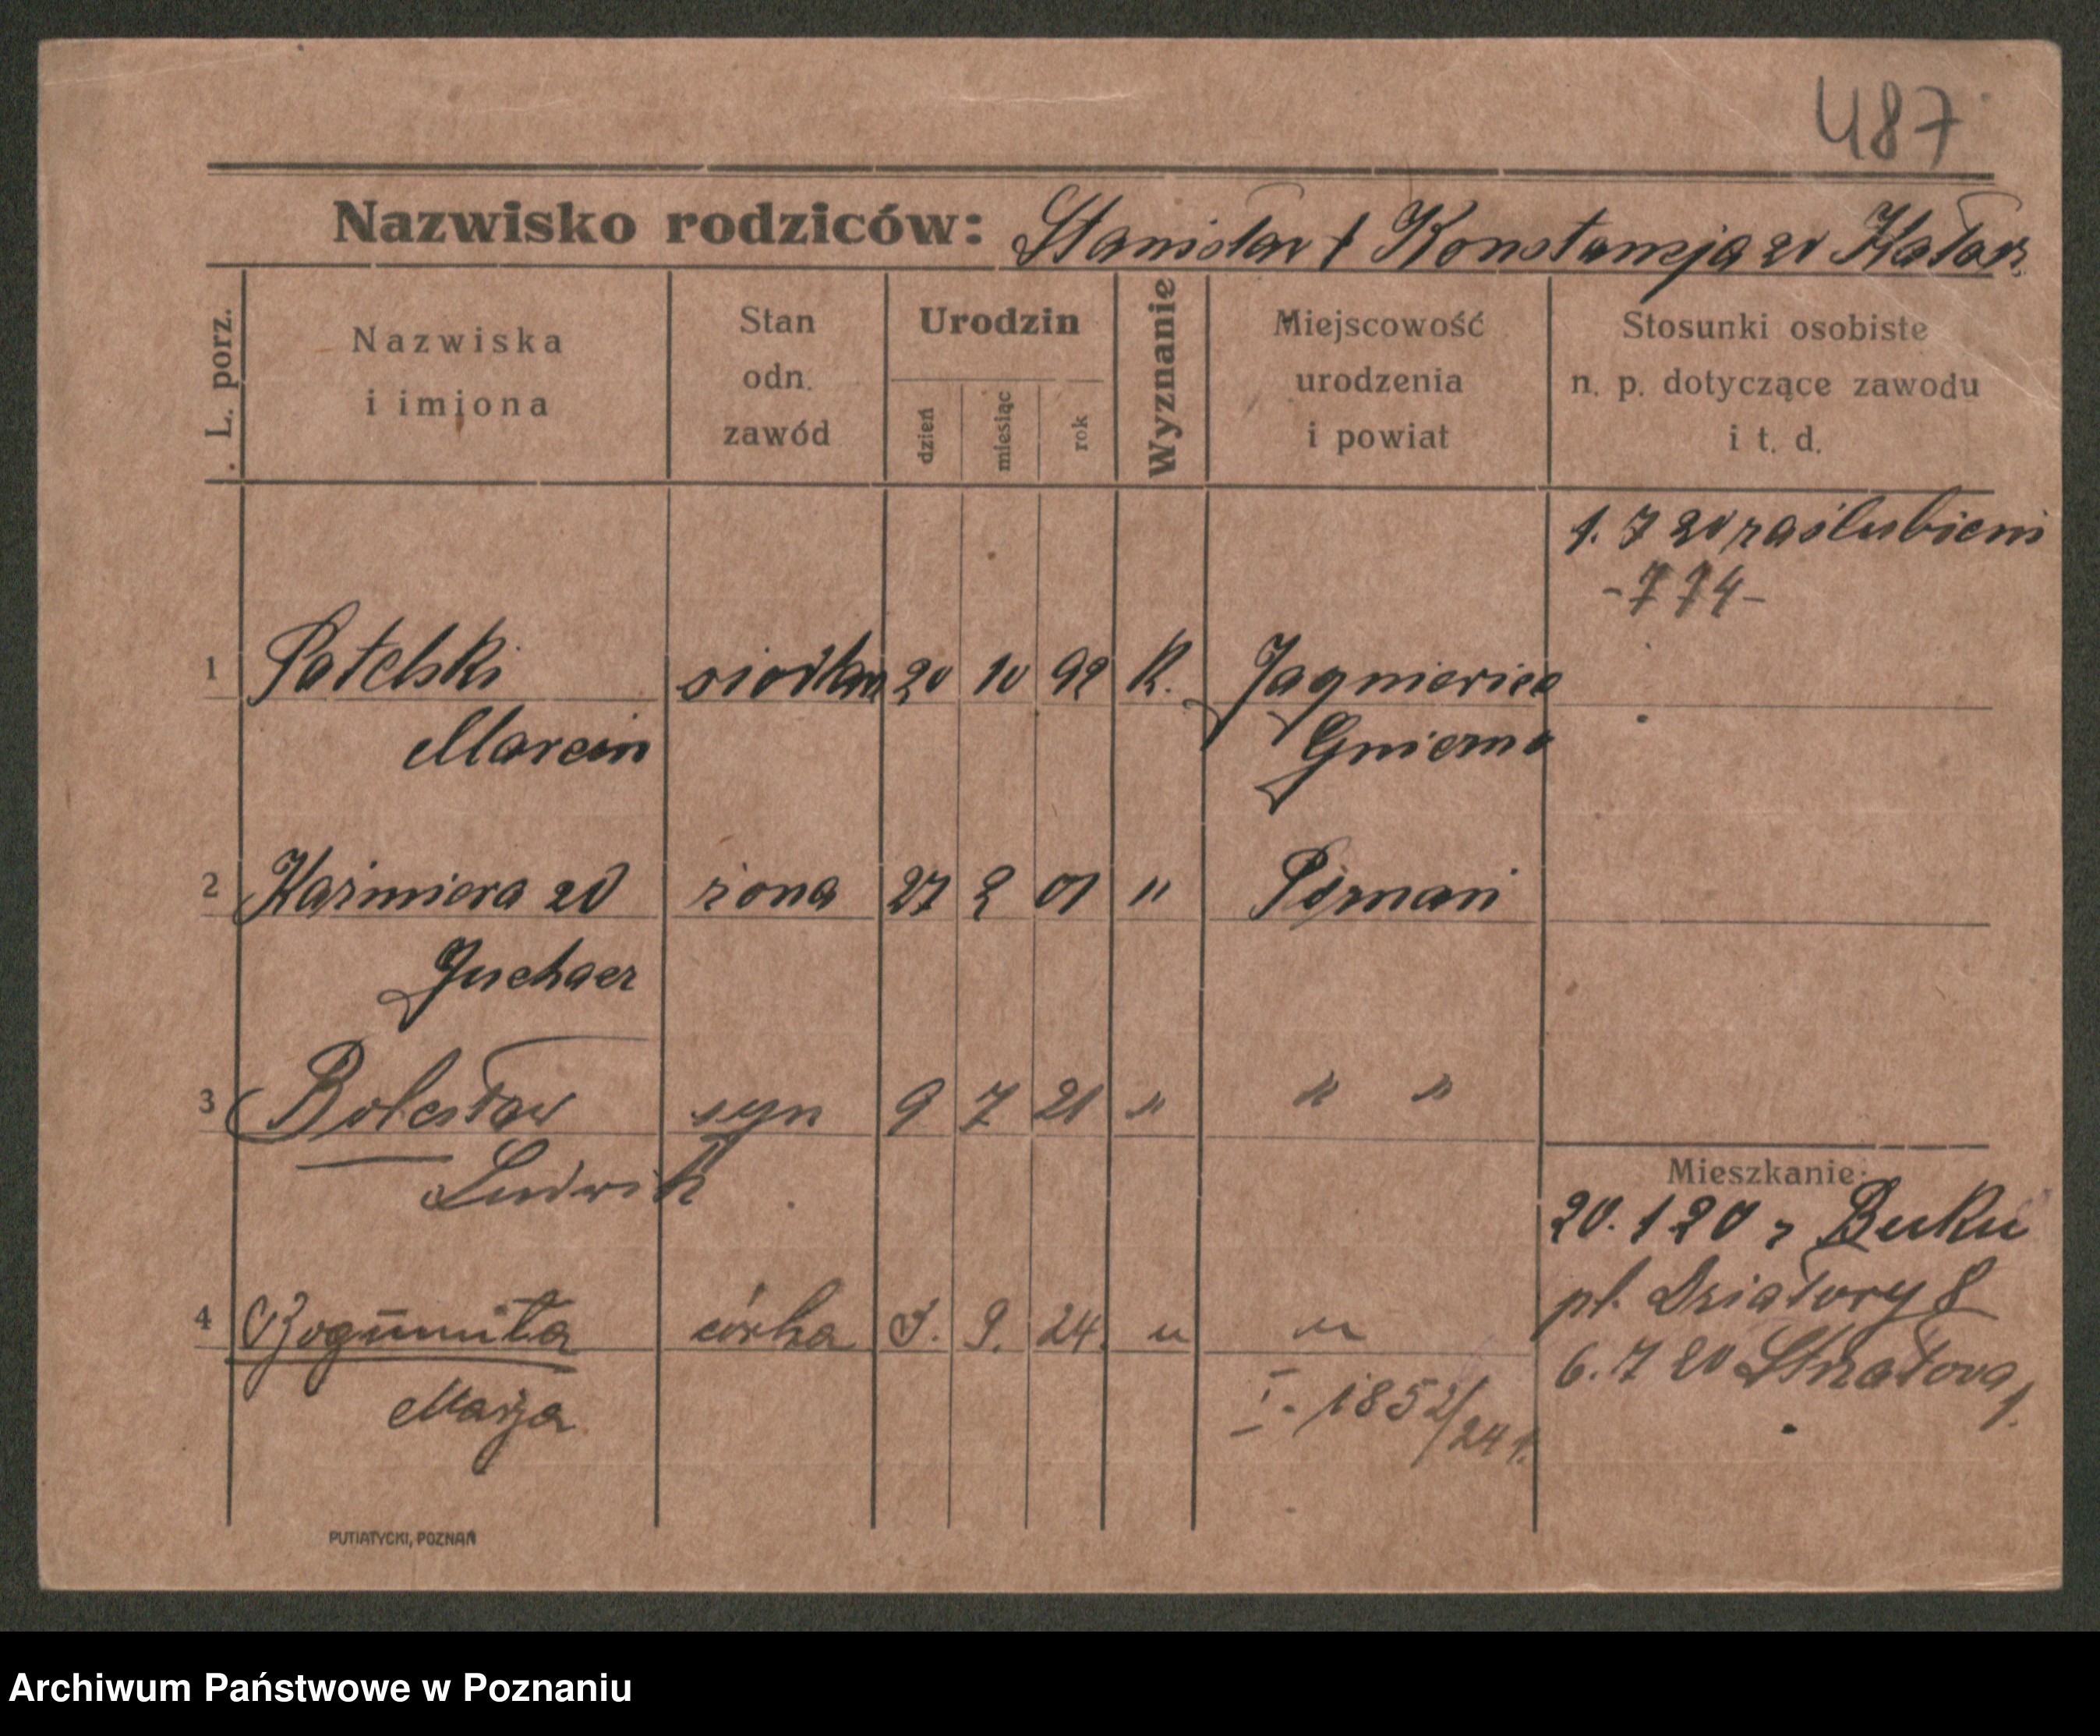 487
Nazwisko rodziców: Stanisław † Konstancja zd
L. porz.
Nazwiska
i imiona
Stan
odn.
zawód
Urodzin
dzień
miesiąc
rok
Wyznanie
Miejscowość
urodzenia
i powiat
Stosunki osobiste
n. p. dotyczące zawodu
i t. d.
1. 7 20 zaślubieni
- 774 -
1 Patelski 20 10 92 K.
Marcin
2 Kaźmiera zd żona 27 2 01 " Poznań
3 Bolesław syn 9 7 21 " " "
Ludwik
Mieszkanie:
20. 1 20 z Buku
pl. Działowy 8
4 Bogumiła córka 3. 9. 24. " "
6. 7 20
Marja
I. 1852/24
PUTIATYCKI, POZNAŃ
Archiwum Państwowe w Poznaniu